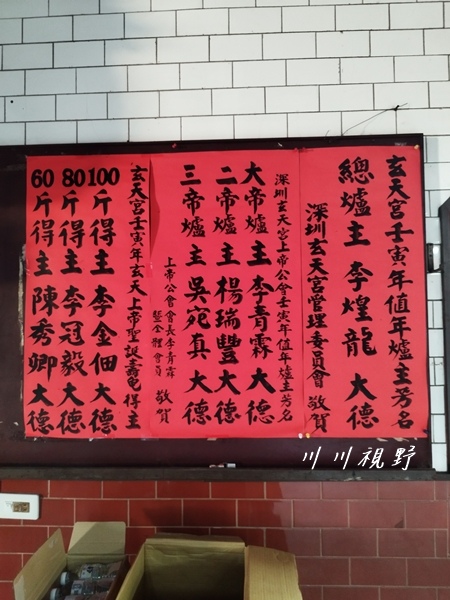 玄天宮壬寅年值年爐主芳名
總爐主 李煌龍 大德
深圳玄天宮管理委員會 敬賀
深圳玄天宮上帝公會壬寅年值年爐主芳名
大帝爐主 李青霖 大德
二帝爐主 楊瑞豐 大德
三帝爐主 吳宛真 大德
上帝公會會長李青霖
暨全體會員 敬賀
玄天宮壬寅年玄天上帝聖誕壽龜得主
100斤得主 李金佃 大德
80斤得主 李冠毅 大德
60斤得主 陳秀卿 大德
川川視野